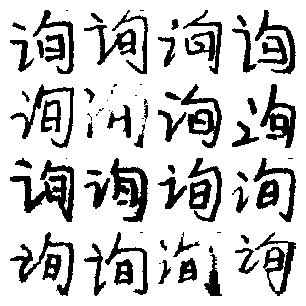 询询询询
询询询
询询询询
询询询询